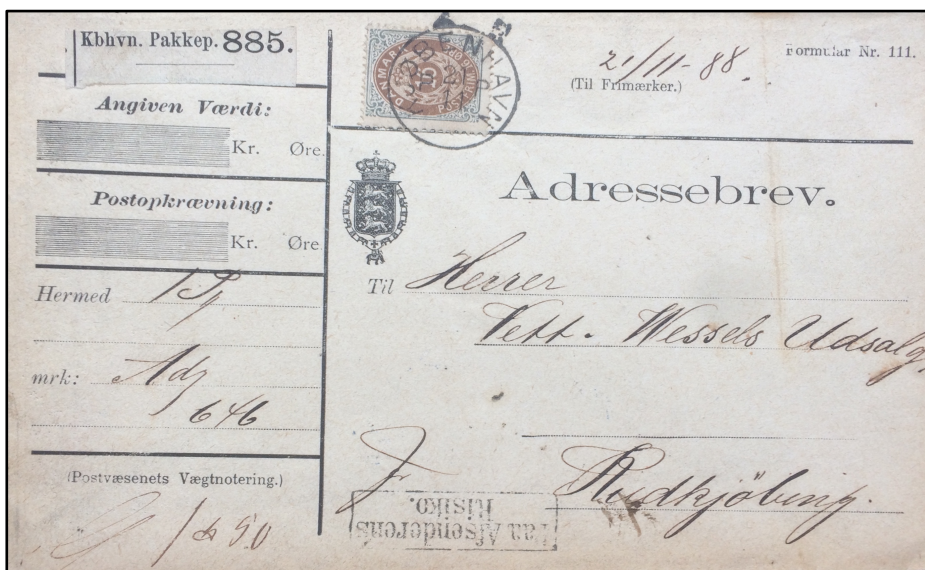 Kbhvn. Pakkep. 885.
Angiven Værdi:
Kr. Øre.
Postopkrævning:
Kr. Øre
Hermed 1 P
mrk: Adr
646
(Postvæsenets Vægtnotering.)
50
DANMARK
POSTFRIM
KJØBENHAVN
21/11-88.
(Til Frimærker.)
Formular Nr. 111.
Adressebrev.
Til Herrer
Vett. Wessels Udsalg,
Rudkjöbing.
Paa Afsenderens
Risiko.